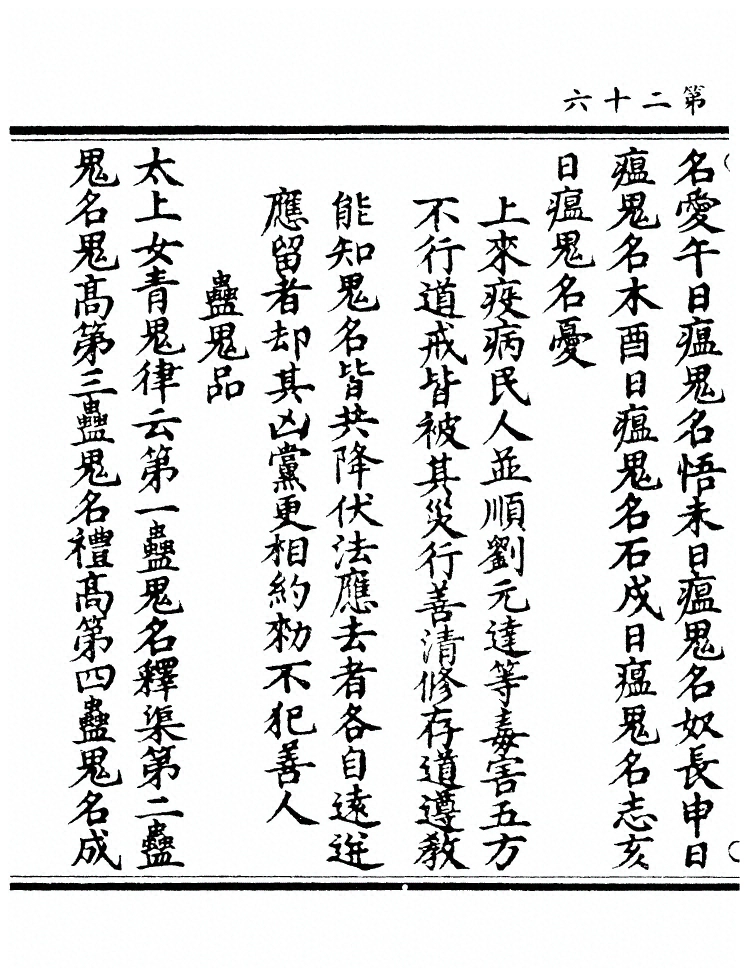 第二十六
名愛午日瘟鬼名悟未日瘟鬼名奴長申日
瘟鬼名木酉日瘟鬼名石戍日瘟鬼名志亥
日瘟鬼名憂
上來疾病民人並順劉元達等毒害五方
不行道戒皆被其災行善清修存道遵教
能知鬼名皆共降伏法應去者各自遠迸
應留者却其凶黨更相約勑不犯善人
蠱鬼品
太上女青鬼律云第一蠱鬼名釋渠第二蠱
鬼名鬼髙第三蠱鬼名禮髙第四蠱鬼名成